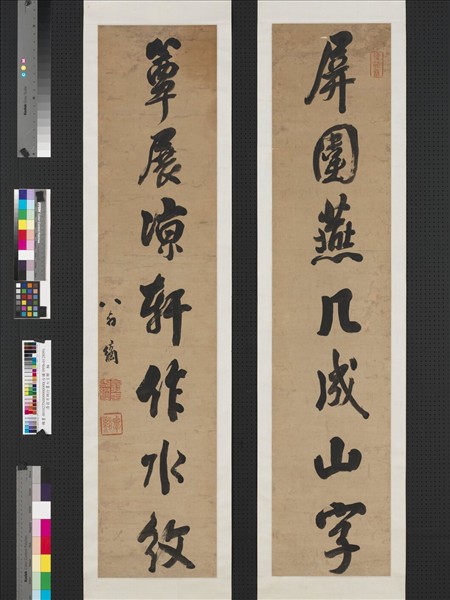 屏圍燕几成山字
簟展涼軒作水紋